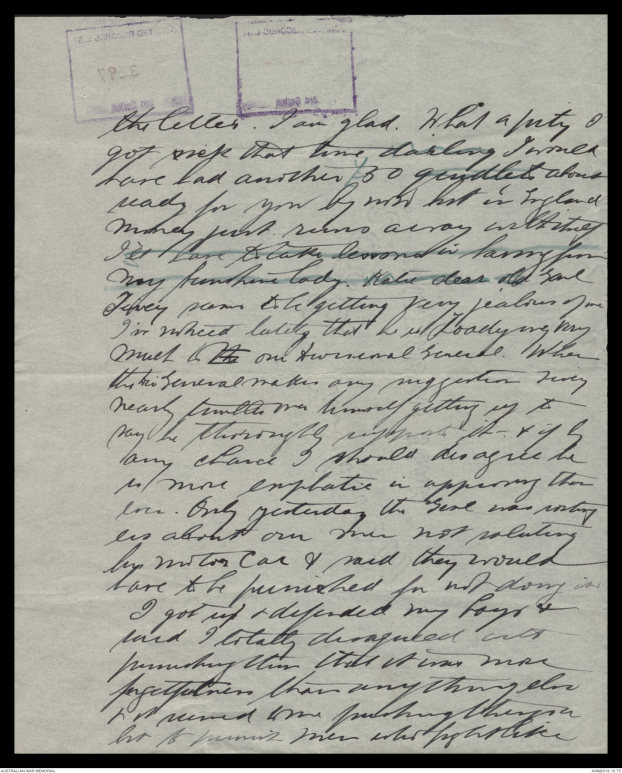 the letter. I am glad. What a pity I
got sick that time darling I would
have had another £50 quidlets about
ready for you by now but in England
money just runs away with itself
I'll have to take lessons in from
my sunshine lady. Katie dear old Genl
Tivey seems to be getting very jealous of me
I've noticed lately that he is Toadying very
much to the our Divisional General. When
this General makes any suggestion Tivey
nearly tumbles over himself getting up to
say he thoroughly supports it & if by
any chance I should disagree he
is more emphatic in approving than
ever. Only yesterday the Genl was roasting
us about our men not saluting
his motor Car & said they would
have to be punished for not doing it
I got up & defended my boys &
said I totally disagreed with
punishing them that it was more
forgetfulness than anything else
& it seemed to me pushing
bit to punish men who fight like
3rd Series
3rd Series
AUSTRALIAN WAR MEMORIAL